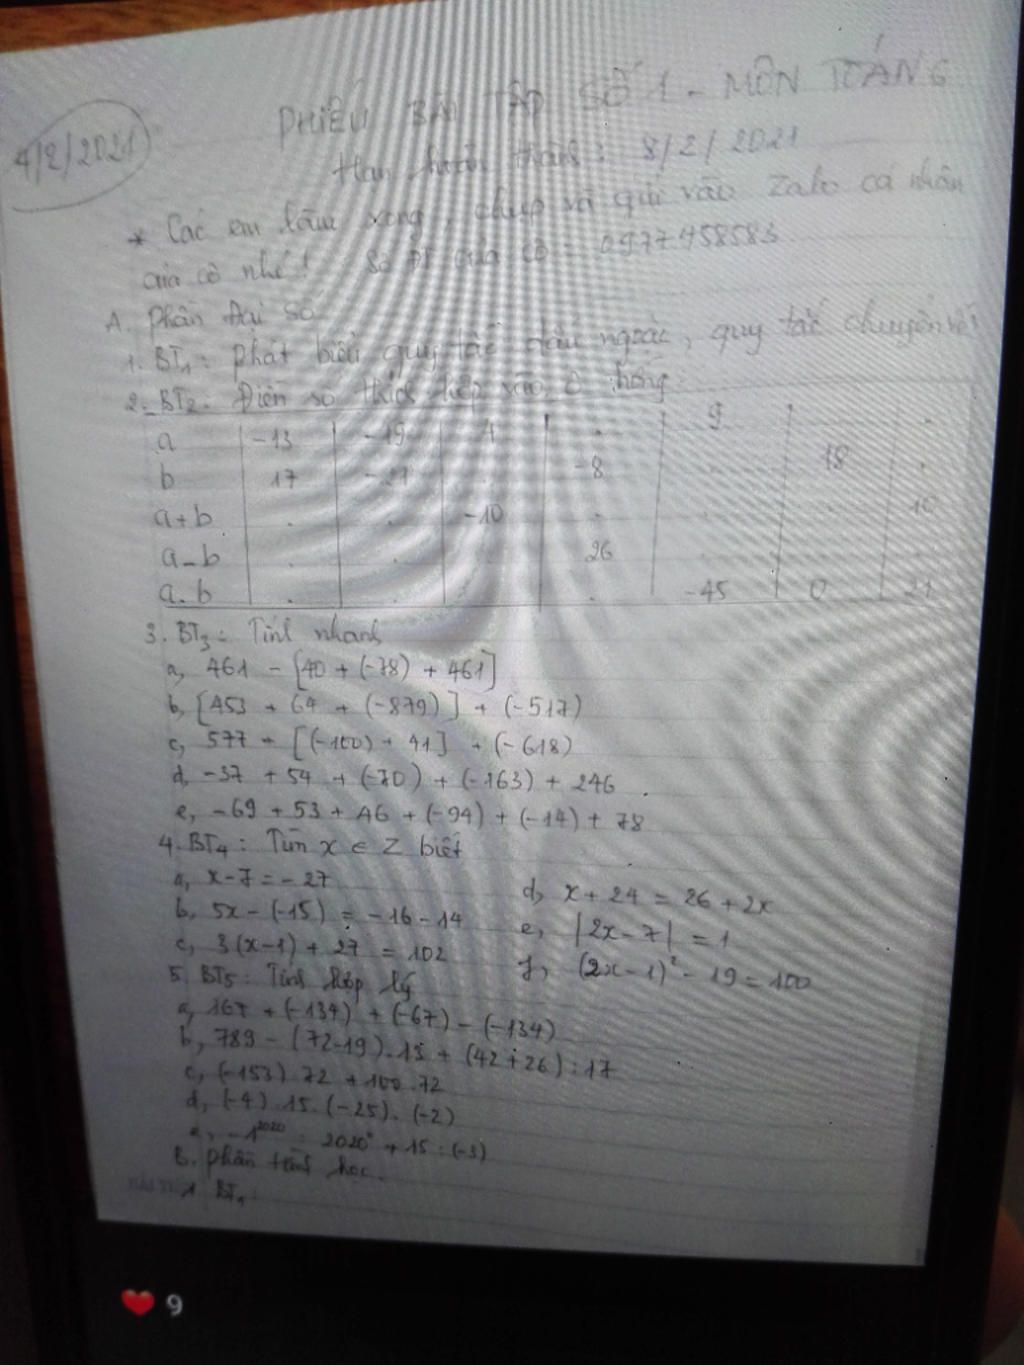 4/2/2021
PHIẾU BÀI TẬP SỐ 1 - MÔN TOÁN 6
Hạn hoàn thành: 8/2/2021
* Các em làm xong, chụp và gửi vào Zalo cá nhân
của cô nhé! Số ĐT của cô 0977458583
A. Phần Đại số
1. BT1: Phát biểu quy tắc dấu ngoặc, quy tắc chuyển vế
2. BT2: Điền số thích hợp vào ô trống
a -13 -19 1 . 9 .
b 17 -21 . -8 . 18 .
a+b . . -10 . . . 10
a-b . . . 26 . . .
a.b . . . . -45 0 21
3. BT3: Tính nhanh
a, 461 - [40 + (-78) + 461]
b, [453 + 64 + (-879)] + (-517)
c, 577 - [(-100) + 41] + (-618)
d, -37 + 54 + (-70) + (-163) + 246
e, -69 + 53 + 46 + (-94) + (-14) + 78
4. BT4: Tìm x ∈ Z biết
a, x-7 = -27
b, 5x-(-15) = -16-14
c, 3(x-1) + 27 = 102
d, x + 24 = 26 + 2x
e, |2x-7| = 1
f, (2x-1)² - 19 = 100
5. BT5: Tính hợp lý
a, 167 + (-134) + (-67) - (-134)
b, 789 - (72-19).15 + (42+26):17
c, (-153).72 + 100.72
d, (-4).15.(-25).(-2)
e, -1²⁰²⁰ : 2020⁰ + 15:(-3)
B. Phần hình học.
1. BT1:
9